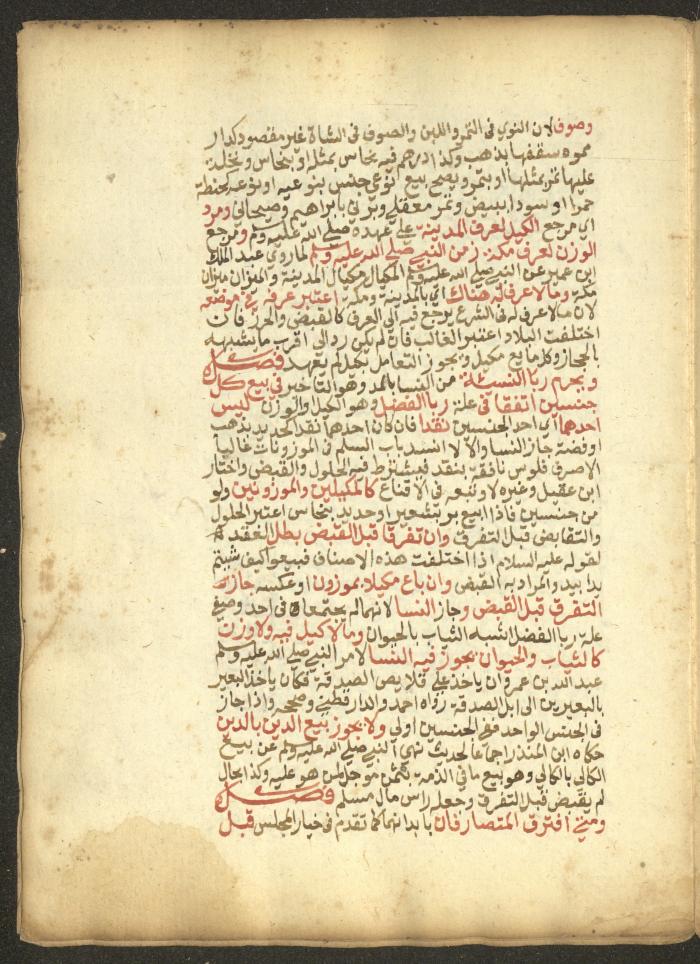 وصوف لان النوي في التمر واللبن والصوف في الشاة غير مقصود كدار
مموه سقفها بذهب وكذا درهم فيه نحاس بمثله او بنحاس ونخلة
عليها تمر بمثلها او بتمر ويصح بيع نوعي جنس بنوعيه او نوعه كحنطة
حمرا وسودا ببيض وتمر معقلي وبرني بابراهيمي وصيحاني ومرد
اي مرجع الكيل لعرف المدينة علي عهده صلي الله عليه وسلم ومرجع
الوزن لعرف مكة زمن النبي صلي الله عليه وسلم لما روي عبد الملك
ابن عمير عن النبي صلي الله عليه وسلم المكيال مكيال المدينة والميزان ميزان
مكة وما لا عرف له هناك اي بالمدينة ومكة اعتبر عرفه في موضعه
لان ما لا عرف له في الشرع يرجع فيه الي العرف كالقبض والحرز فان
اختلفت البلاد اعتبر الغالب فان لم يكن رد الي اقرب ما يشبهه
بالحجاز وكل مايع مكيل ويجوز التعامل بكيل لم يعهد فصل
ويحرم ربا النسيئة من النسا بالمد وهو التاخير في بيع كل
جنسين اتفقا في علة ربا الفضل وهو الكيل والوزن ليس
احدهما اي احد الجنسين نقدا فان كان احدهما نقدا كحديد بذهب
او فضة جاز النسا والا لانسد باب السلم في الموزونات غالبا
الا صرف فلوس نافقة بنقد فيشترط فيه الحلول والقبض واختار
ابن عقيل وغيره لا وتبعه في الاقناع كالمكيلين والموزونين ولو
من جنسين فاذا ابيع بر بشعير او حديد بنحاس اعتبر الحلول
والتقابض قبل التفرق وان تفرقا قبل القبض بطل العقد
لقوله عليه السلام اذا اختلفت هذه الاصناف فبيعوا كيف شيتم
يدا بيد والمراد به القبض وان باع مكيلا بموزون او عكسه جاز
التفرق قبل القبض وجاز النسا لانهما لم يجتمعا في احد وصفي
علة ربا الفضل اشبه الثياب بالحيوان وما لا كيل فيه ولا وزن
كالثياب والحيوان يجوز فيه النسا لامر النبي صلي الله عليه وسلم
عبد الله بن عمرو ان ياخذ علي قلايص الصدقة فكان ياخذ البعير
بالبعيرين الي ابل الصدقة رواه احمد والدارقطني وصححه واذا جاز
في الجنس الواحد ففي الجنسين اولي ولا يجوز بيع الدين بالدين
حكاه ابن المنذر اجماعا لحديث نهي النبي صلي الله عليه وسلم عن بيع
الكالي بالكالي وهو بيع ما في الذمة بثمن موجل لمن هو عليه وكذا بحال
لم يقبض قبل التفرق وجعله راس مال سلم فصل
ومتي افترق المتصارفان بابدانهما كما تقدم في خيار المجلس قبل